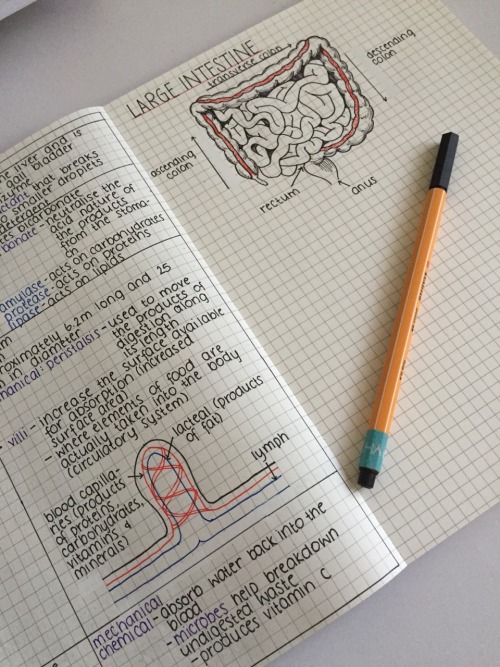 LARGE INTESTINE
transverse colon
descending
colon
ascending
colon
rectum
anus
liver and is
gall bladder
that breaks
smaller droplets
bicarbonate
neutralise the
acid nature of
the products
from the stoma-
amylase - acts on carbohydrates
protease - acts on proteins
lipase - acts on lipids
6.2m long and 25
in diamtter
peristalsis - used to move
the products of
digestion along
its length
villi - increase the surface available
for absorption (increased
surface area)
- where elements of food are
actually taken into the body
(circulatory system)
lacteal (products
of fat)
lymph
blood capilla-
ries (products
of proteins,
carbohydrates,
vitamins &
minerals)
mechanical
chemical
- absorb water back into the
blood
- microbes help breakdown
undigested waste
- produces vitamin C